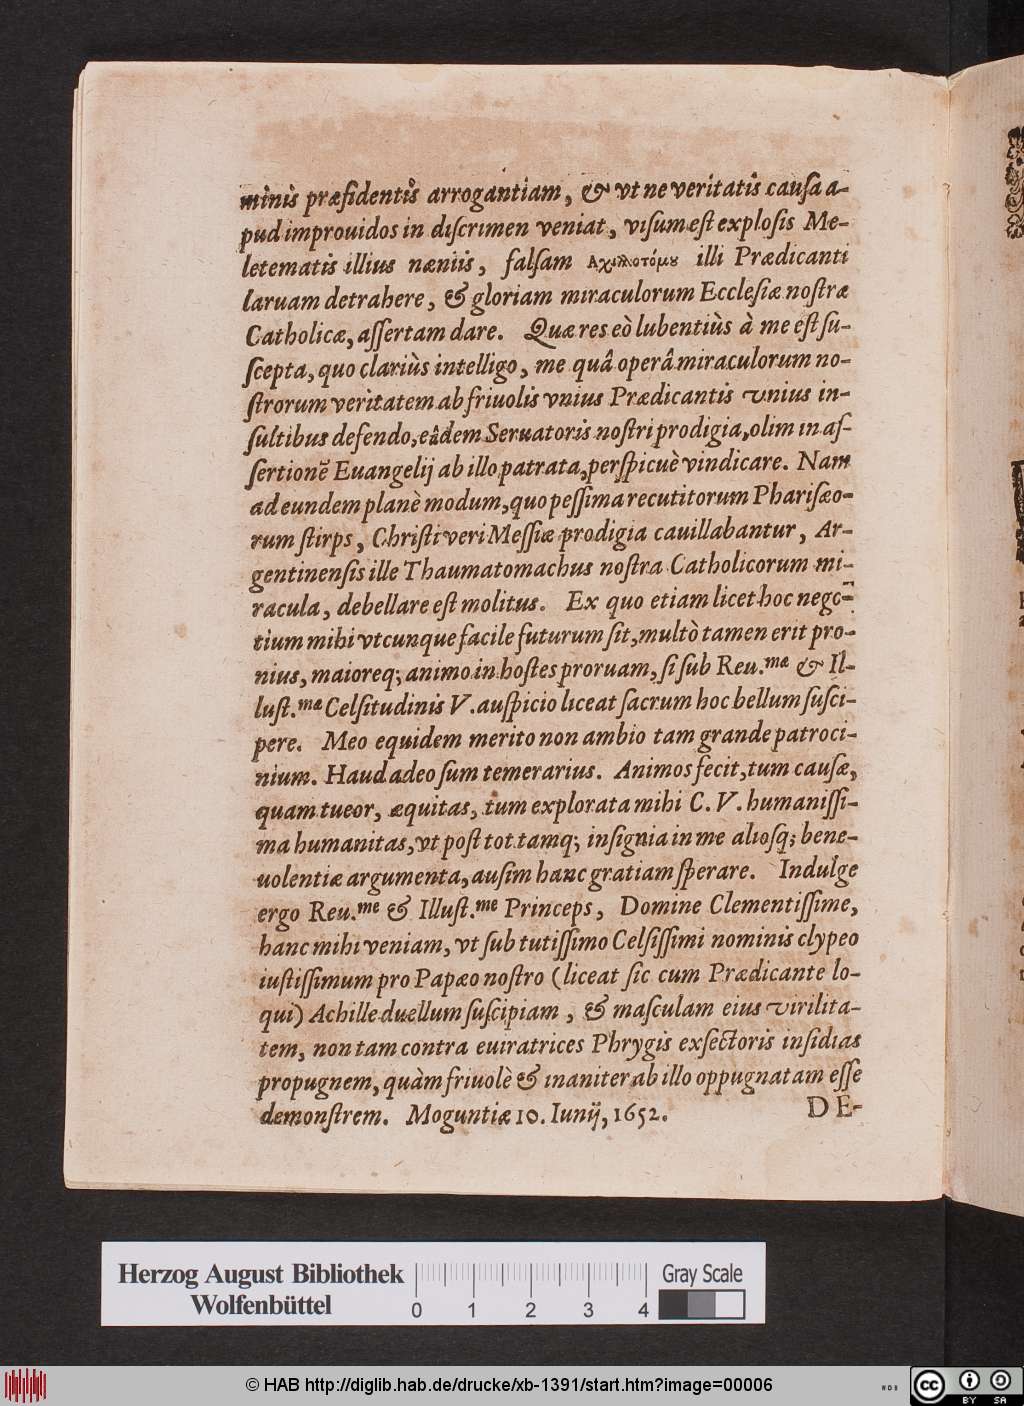 minis præſidentis arrogantiam, & vt ne veritatis cauſa a-
pud improuidos in diſcrimen veniat, viſum eſt exploſis Me-
letematis illius næniis, falſam Αχιλλοτόμου illi Prædicanti
laruam detrahere, & gloriam miraculorum Eccleſiæ noſtræ
Catholicæ, aſſertam dare. Quæ res eò lubentiùs à me eſt ſu-
ſcepta, quo clariùs intelligo, me quâ operâ miraculorum no-
ſtrorum veritatem ab friuolis vnius Prædicantis vnius in-
ſultibus defendo, eâdem Seruatoris noſtri prodigia, olim in aſ-
ſertionē Euangelij ab illo patrata, perſpicuè vindicare. Nam
ad eundem planè modum, quo peſſima recutitorum Phariſæo-
rum ſtirps, Chriſti veri Meſſiæ prodigia cauillabantur, Ar-
gentinenſis ille Thaumatomachus noſtra Catholicorum mi-
racula, debellare eſt molitus. Ex quo etiam licet hoc nego-
tium mihi vtcunque facile futurum ſit, multò tamen erit pro-
nius, maioreq; animo in hoſtes proruam, ſi ſub Reu.mæ & Il-
luſt.mæ Celſitudinis V. auſpicio liceat ſacrum hoc bellum ſuſci-
pere. Meo equidem merito non ambio tam grande patroci-
nium. Haud adeo ſum temerarius. Animos fecit, tum cauſæ,
quam tueor, æquitas, tum explorata mihi C. V. humaniſſi-
ma humanitas, vt poſt tot tamq; inſignia in me alioſq; bene-
uolentiæ argumenta, auſim hanc gratiam ſperare. Indulge
ergo Reu.me & Illuſt.me Princeps, Domine Clementiſſime,
hanc mihi veniam, vt ſub tutiſſimo Celſiſſimi nominis clypeo
iuſtiſſimum pro Papæo noſtro (liceat ſic cum Prædicante lo-
qui) Achille duellum ſuſcipiam, & maſculam eius virilita-
tem, non tam contra euiratrices Phrygis exſectoris inſidias
propugnem, quàm friuolè & inaniter ab illo oppugnatam eſſe
demonſtrem. Moguntiæ 10. Iunij, 1652.
DE-
Herzog August Bibliothek
Wolfenbüttel
0 1 2 3 4
Gray Scale
© HAB http://diglib.hab.de/drucke/xb-1391/start.htm?image=00006
cc BY SA